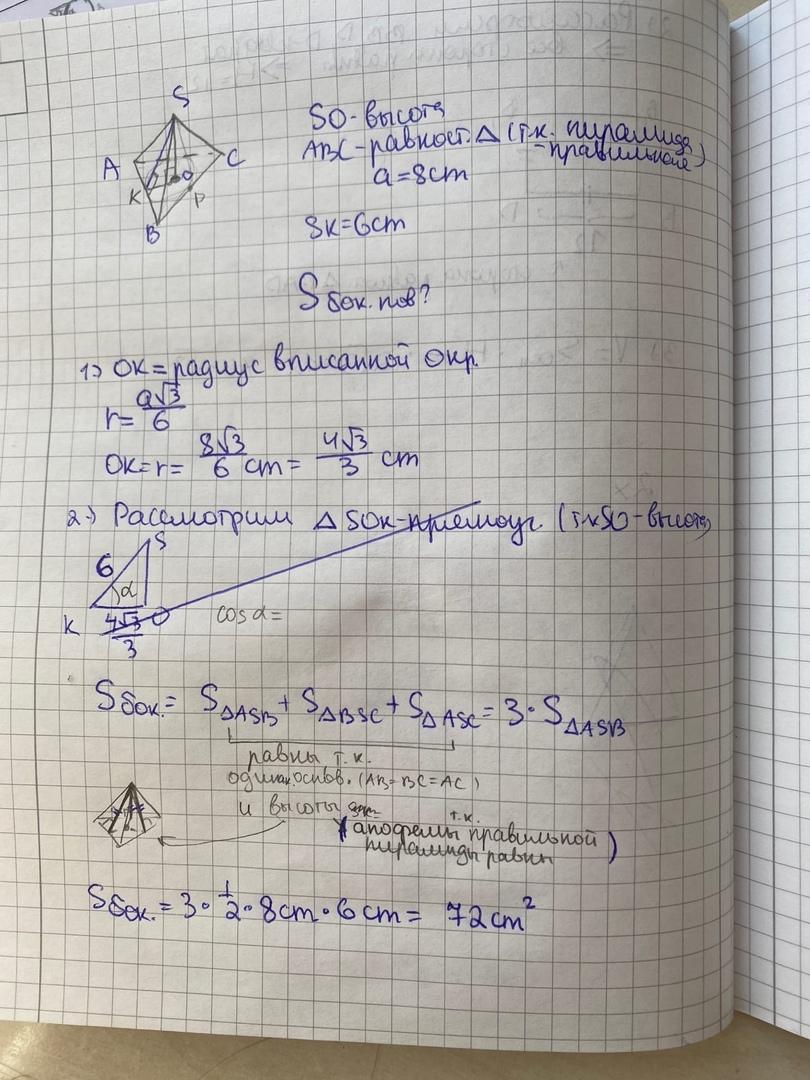 S
A
C
K
O
P
B
SO-высота
ABC-равност. Δ (т.к. пирамида
-правильная)
a=8cm
SK=6cm
S бок. пов?
1) OK = радиус вписанной окр.
r= a√3/6
OK=r= 8√3/6 cm = 4√3/3 cm
2) Рассмотрим Δ SOK-прямоуг. (т.к SO-высота)
S
6
α
K 4√3/3 O
cos α=
Sбок.= SΔASB + SΔBSC + SΔASC = 3·SΔASB
равны т.к.
одинак. основ. (AB=BC=AC)
и высоты
(т.к. апофемы правильной
пирамиды равны)
Sбок.= 3·1/2·8cm·6cm= 72cm²